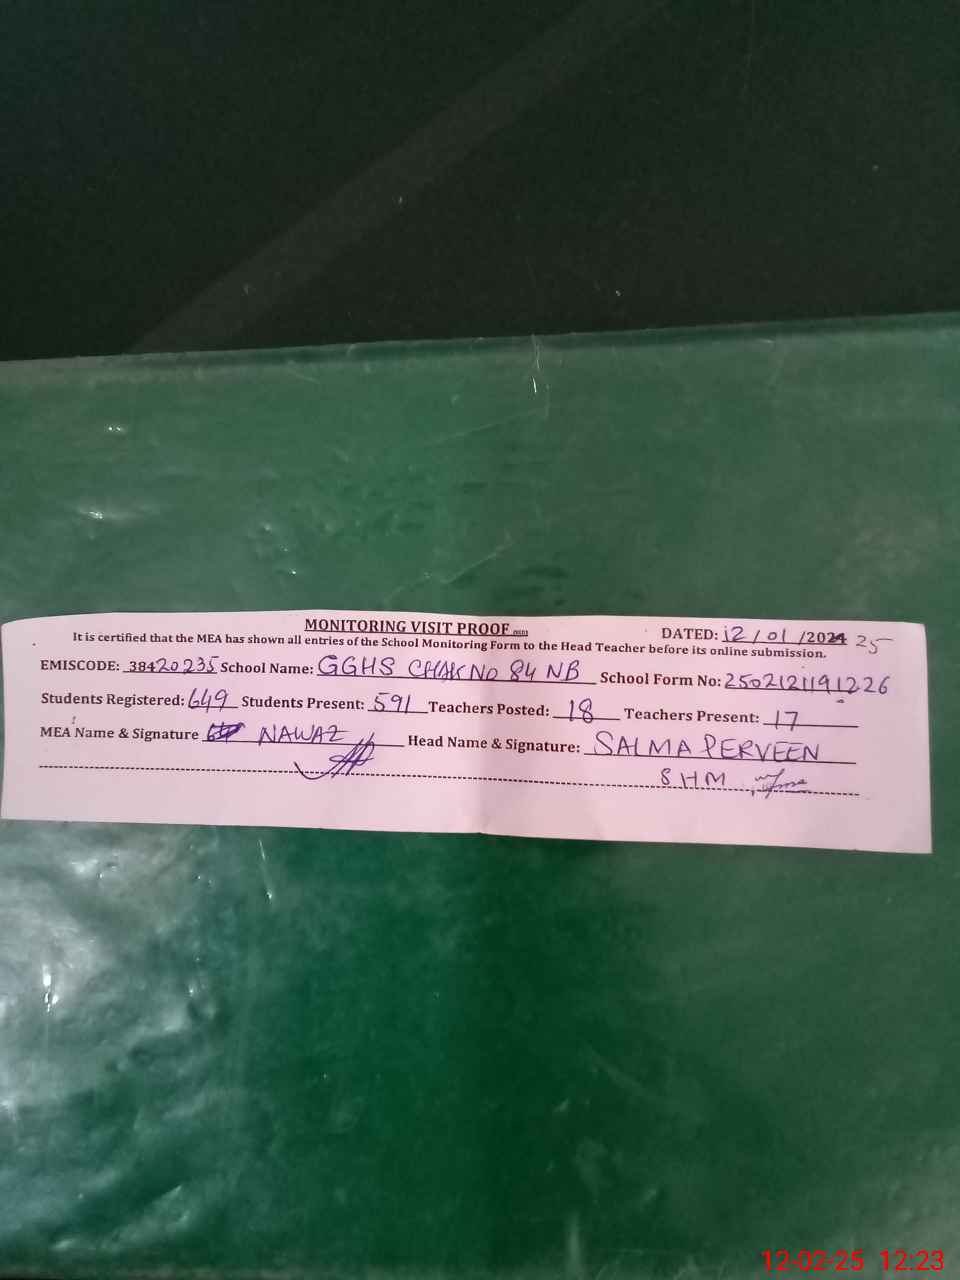 MONITORING VISIT PROOF
DATED: 12/01/2024 25
It is certified that the MEA has shown all entries of the School Monitoring Form to the Head Teacher before its online submission.
EMISCODE: 38420235 School Name: GGHS CHAK NO 84 NB School Form No: 2502121191226
Students Registered: 649 Students Present: 591 Teachers Posted: 18 Teachers Present: 17
MEA Name & Signature NAWAZ Head Name & Signature: SALMA PERVEEN
SHM
12-02-25 12:23